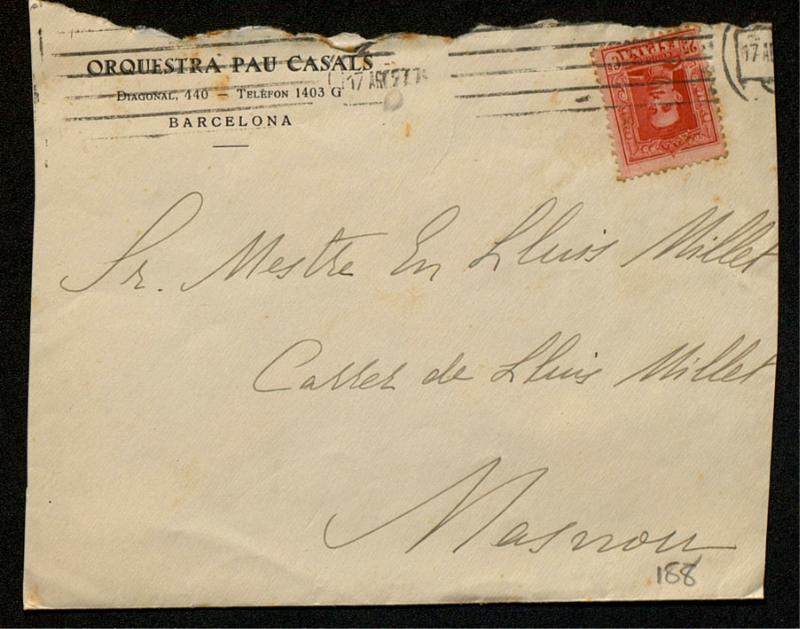 ORQUESTRA PAU CASALS
DIAGONAL, 440 — TELÈFON 1403 G
BARCELONA
Sr. Mestre En Lluis Millet
Carrer de Lluis Millet
Masnou
188